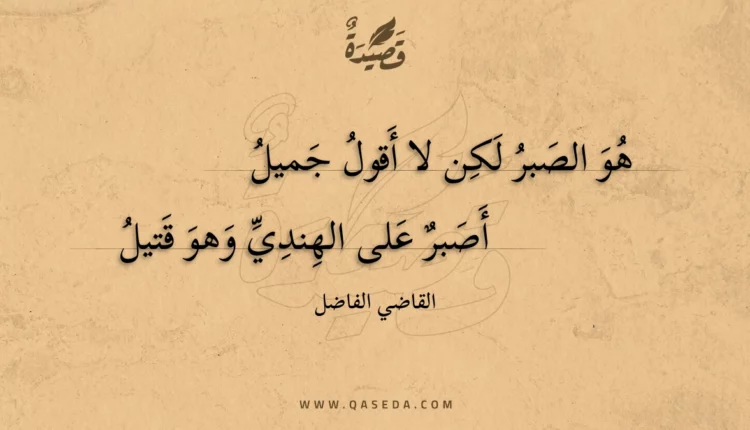 قَصِيْدَةٌ
هُوَ الصَبرُ لَكِن لا أَقولُ جَميلُ
أَصَبرٌ عَلى الهِندِيِّ وَهوَ قَتيلُ
القاضي الفاضل
WWW.QASEDA.COM